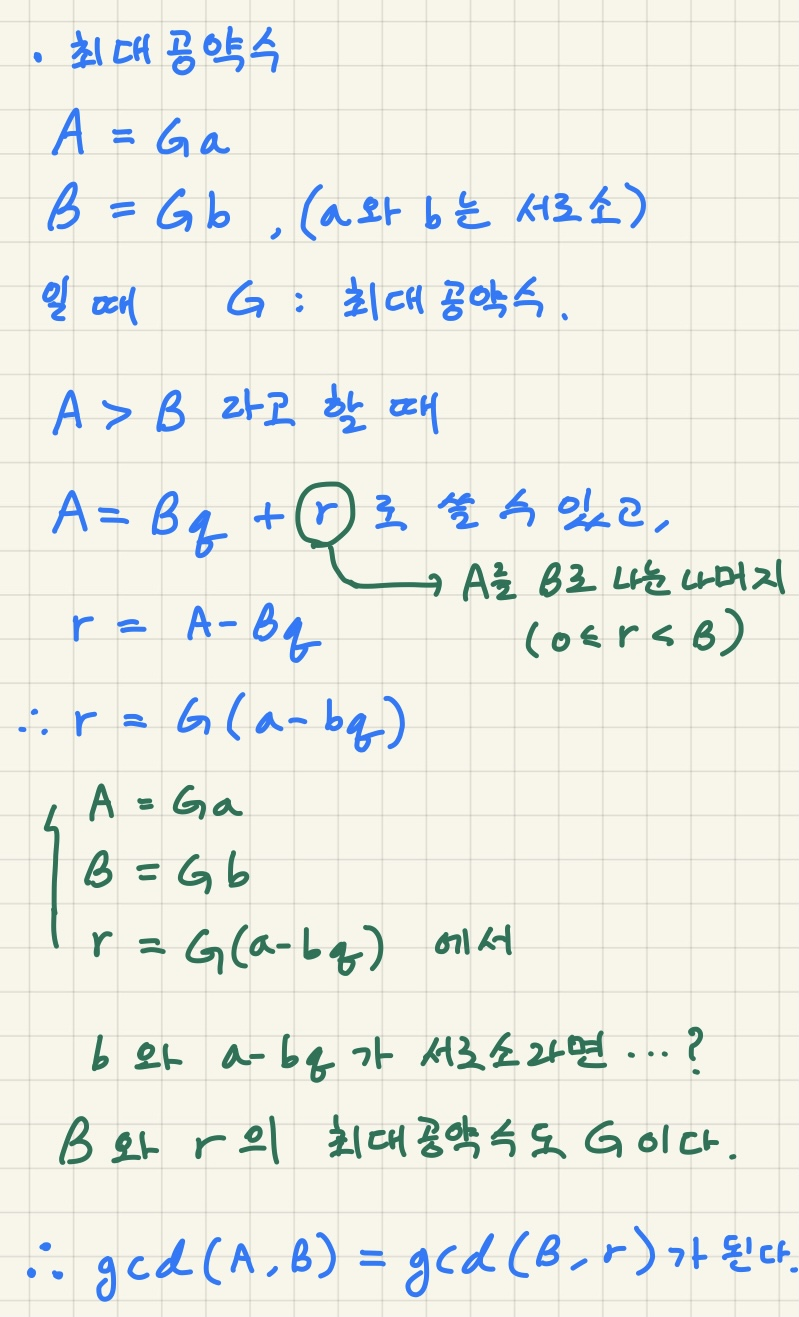 · 최대공약수
A = Ga
B = Gb , (a와 b는 서로소)
일 때 G : 최대공약수.
A > B 라고 할 때
A = Bq + r 로 쓸 수 있고,
→ A를 B로 나눈 나머지
r = A - Bq
(0 ≤ r < B)
∴ r = G(a - bq)
A = Ga
B = Gb
r = G(a - bq) 에서
b 와 a - bq 가 서로소라면 ... ?
B 와 r 의 최대공약수도 G 이다.
∴ gcd(A, B) = gcd(B, r) 가 된다.